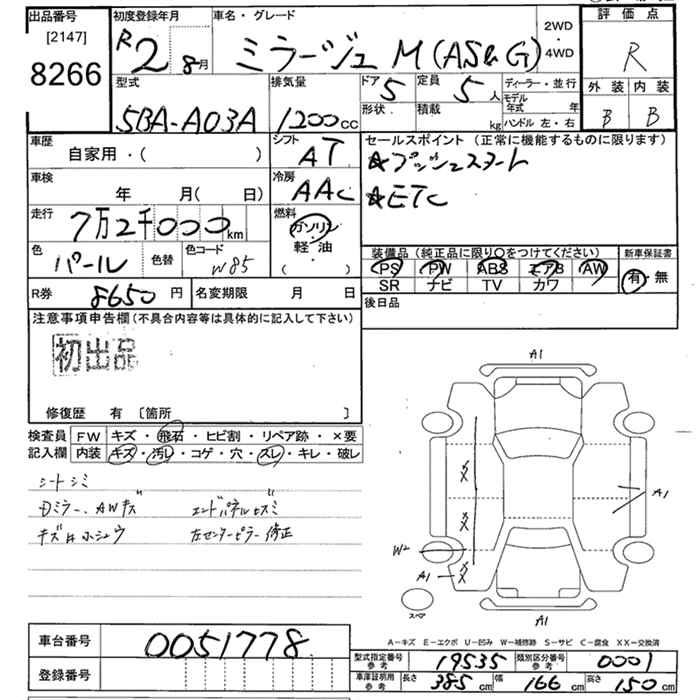 出品番号 初度登録年月 車名・グレード 2WD・4WD 評価点
[2147]
8266
R2 8月 ミラージュ M(AS&G) R
型式 排気量 ドア 5 定員 5人 ディーラー・並行 外装 内装
5BA-A03A 1200cc 形状 積載 kg モデル年式 年 B B
ハンドル 左・右
車歴 シフト セールスポイント(正常に機能するものに限ります)
自家用・( ) AT ☆プッシュスタート
車検 冷房 ☆ETC
年 月( 日) AAC
走行 7万2千000km 燃料 ガソリン
軽油
( )
色 パール 色替 色コード W85
装備品(純正品に限り○をつけてください) 新車保証書
PS PW ABS エアB AW 有・無
SR ナビ TV カワ
R券 8650円 名変期限 月 日 後日品
注意事項申告欄(不具合内容等は具体的に記入して下さい)
初出品
修復歴 有 〔箇所 〕
検査員 FW キズ・飛石・ヒビ割・リペア跡・×要
記入欄 内装 キズ・汚レ・コゲ・穴・スレ・キレ・破レ
シートシミ
Dミラー、AWキズ エンドパネルヒズミ
キズ#ホシュウ 左センターピラー修正
A1
A1
W2
A1
スペア
A1
A-キズ E-エクボ U-凹み W-補修跡 S-サビ C-腐食 XX-交換済
車台番号 0051778
型式指定番号 参考 19535 類別区分番号 参考 0001
登録番号
車庫証明用 参考 長さ 385cm 幅 166cm 高さ 150cm